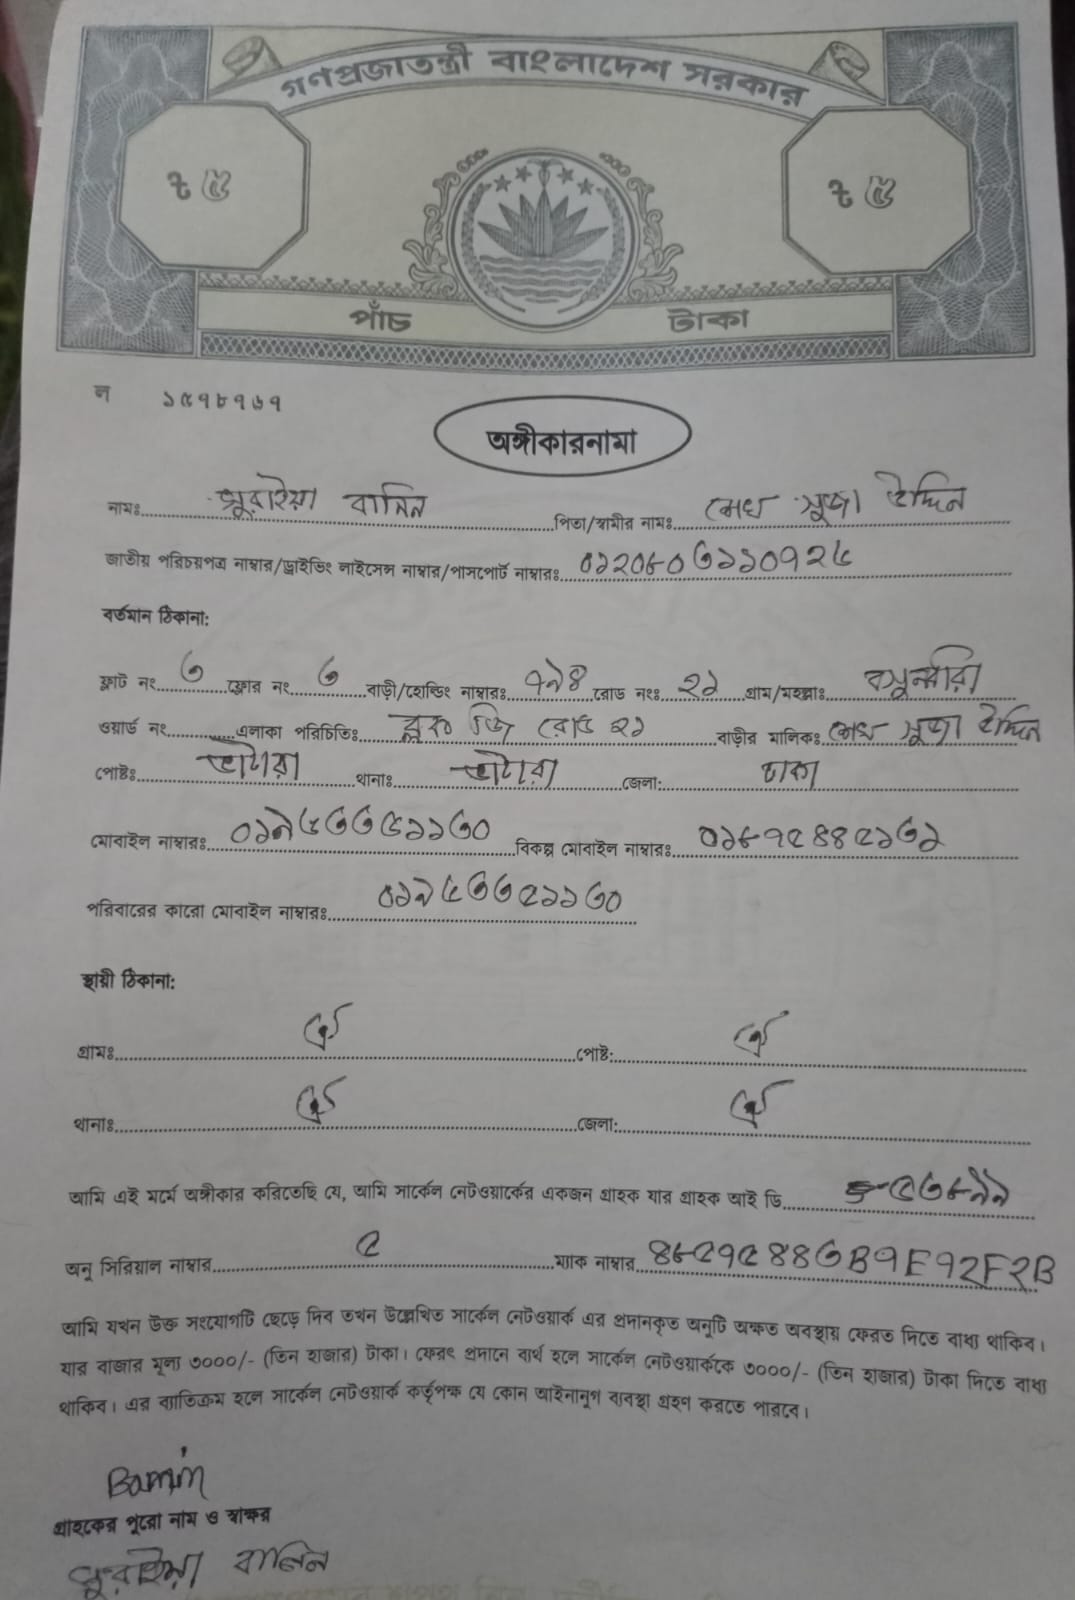 গণপ্রজাতন্ত্রী বাংলাদেশ সরকার
৳ ৫ ৳ ৫
পাঁচ টাকা
ল ১৫৭৮৭৬৭
অঙ্গীকারনামা
নামঃ সুরাইয়া বানিন পিতা/স্বামীর নামঃ সুজা উদ্দিন
জাতীয় পরিচয়পত্র নাম্বার/ড্রাইভিং লাইসেন্স নাম্বার/পাসপোর্ট নাম্বারঃ
বর্তমান ঠিকানা:
ফ্লাট নং ৩ ফ্লোর নং ৩ বাড়ী/হোল্ডিং নাম্বারঃ ৭৯৪ রোড নংঃ ২১ গ্রাম/মহল্লাঃ
ওয়ার্ড নং এলাকা পরিচিতিঃ ব্লক জি রোড ২১ বাড়ীর মালিকঃ সুজা উদ্দিন
পোষ্টঃ ভাটারা থানাঃ ভাটারা জেলা: ঢাকা
মোবাইল নাম্বারঃ ০১৯৫৩৩৫১১৩০ বিকল্প মোবাইল নাম্বারঃ ০১৮৭৫৪৪৫১৩১
পরিবারের কারো মোবাইল নাম্বারঃ ০১৯৫৩৩৫১১৩০
স্থায়ী ঠিকানা:
গ্রামঃ ঐ পোষ্ট: ঐ
থানাঃ ঐ জেলা: ঐ
আমি এই মর্মে অঙ্গীকার করিতেছি যে, আমি সার্কেল নেটওয়ার্কের একজন গ্রাহক যার গ্রাহক আই ডি ৫৩৮৯৯
অনু সিরিয়াল নাম্বার ৫ ম্যাক নাম্বার ৪৮৫৭৫৪৪৩B৭E৭২F২B
আমি যখন উক্ত সংযোগটি ছেড়ে দিব তখন উল্লেখিত সার্কেল নেটওয়ার্ক এর প্রদানকৃত অনুটি অক্ষত অবস্থায় ফেরত দিতে বাধ্য থাকিব।
যার বাজার মূল্য ৩০০০/- (তিন হাজার) টাকা। ফেরৎ প্রদানে ব্যর্থ হলে সার্কেল নেটওয়ার্ককে ৩০০০/- (তিন হাজার) টাকা দিতে বাধ্য
থাকিব। এর ব্যতিক্রম হলে সার্কেল নেটওয়ার্ক কর্তৃপক্ষ যে কোন আইনানুগ ব্যবস্থা গ্রহণ করতে পারবে।
Bamin
গ্রাহকের পুরো নাম ও স্বাক্ষর
সুরাইয়া বানিন